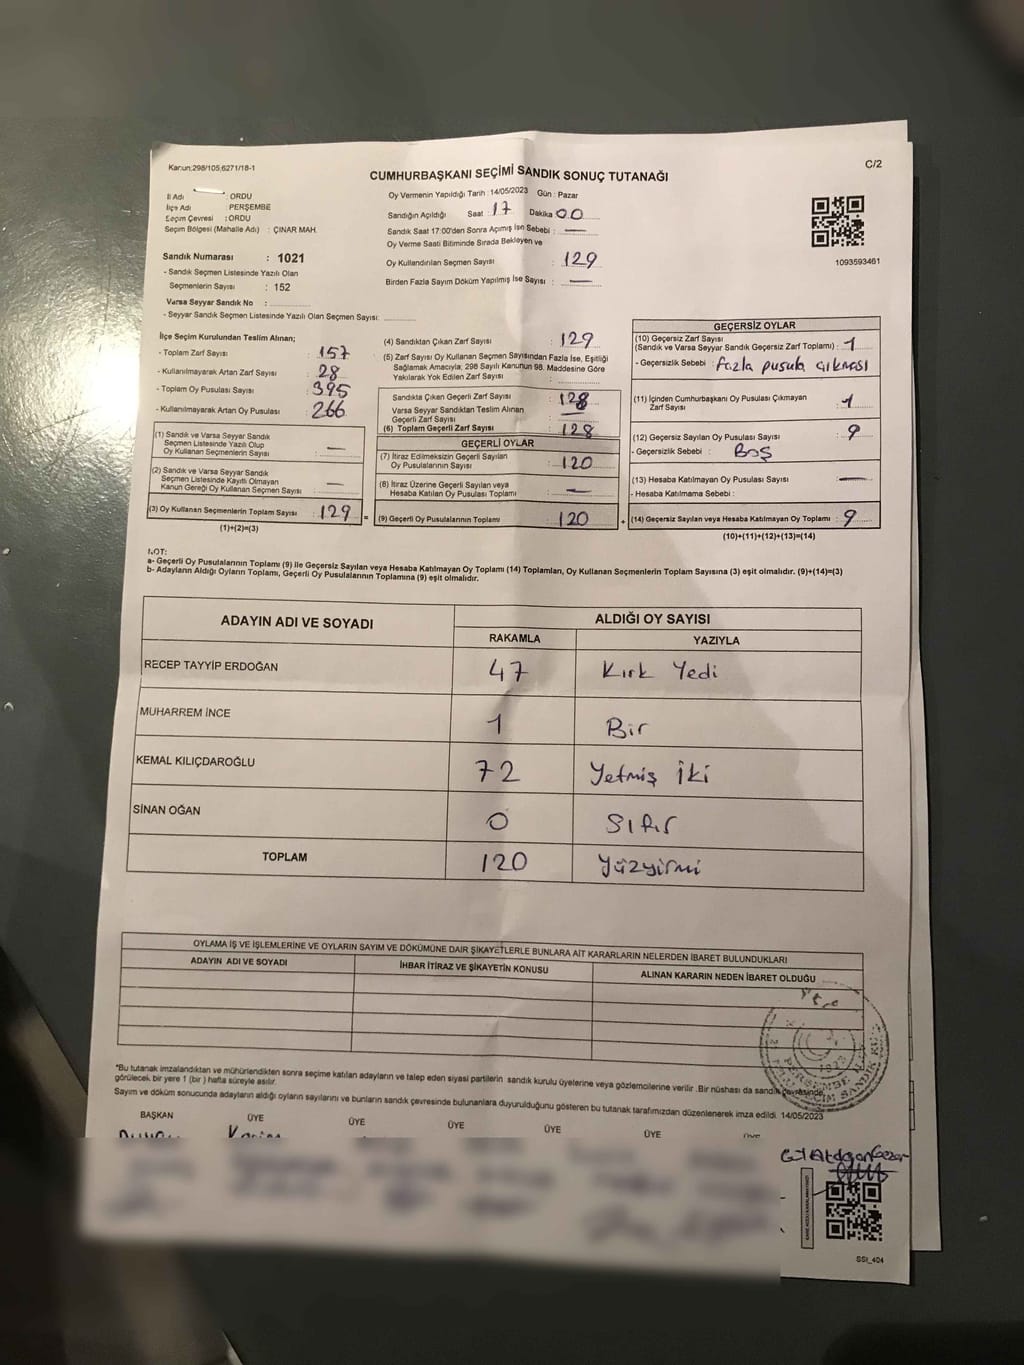 Kanun:298/105,6271/18-1
C/2
CUMHURBAŞKANI SEÇİMİ SANDIK SONUÇ TUTANAĞI
İl Adı : ORDU
İlçe Adı : PERŞEMBE
Seçim Çevresi : ORDU
Seçim Bölgesi (Mahalle Adı) : ÇINAR MAH.
Oy Vermenin Yapıldığı Tarih : 14/05/2023 Gün : Pazar
Sandığın Açıldığı Saat : 17 Dakika 00
Sandık Saat 17:00'den Sonra Açımış İsn Sebebi : —
Oy Verme Saati Bitiminde Sırada Bekleyen ve
Oy Kullandırılan Seçmen Sayısı : 129
Birden Fazla Sayım Döküm Yapılmış İse Sayısı : —
1093593461
Sandık Numarası : 1021
- Sandık Seçmen Listesinde Yazılı Olan
Seçmenlerin Sayısı : 152
Varsa Seyyar Sandık No :
- Seyyar Sandık Seçmen Listesinde Yazılı Olan Seçmen Sayısı:
İlçe Seçim Kurulundan Teslim Alınan;
- Toplam Zarf Sayısı : 157
- Kullanılmayarak Artan Zarf Sayısı : 28
- Toplam Oy Pusulası Sayısı : 395
- Kullanılmayarak Artan Oy Pusulası : 266
(1) Sandık ve Varsa Seyyar Sandık
Seçmen Listesinde Yazılı Olup
Oy Kullanan Seçmen Sayısı : —
(2) Sandık ve Varsa Seyyar Sandık
Seçmen Listesinde Kayıtlı Olmayan
Kanun Gereği Oy Kullanan Seçmen Sayısı : —
(3) Oy Kullanan Seçmenlerin Toplam Sayısı : 129 =
(1)+(2)=(3)
(4) Sandıktan Çıkan Zarf Sayısı : 129
(5) Zarf Sayısı Oy Kullanan Seçmen Sayısından Fazla İse, Eşitliği
Sağlamak Amacıyla; 298 Sayılı Kanunun 98. Maddesine Göre
Yakılarak Yok Edilen Zarf Sayısı :
Sandıkta Çıkan Geçerli Zarf Sayısı : 128
Varsa Seyyar Sandıktan Teslim Alınan
Geçerli Zarf Sayısı : —
(6) Toplam Geçerli Zarf Sayısı : 128
GEÇERLİ OYLAR
(7) İtiraz Edilmeksizin Geçerli Sayılan
Oy Pusulalarının Sayısı : 120
(8) İtiraz Üzerine Geçerli Sayılan veya
Hesaba Katılan Oy Pusulası Toplamı : —
(9) Geçerli Oy Pusulalarının Toplamı : 120 +
GEÇERSİZ OYLAR
(10) Geçersiz Zarf Sayısı
(Sandık ve Varsa Seyyar Sandık Geçersiz Zarf Toplamı) : 1
- Geçersizlik Sebebi : fazla pusula çıkması
(11) İçinden Cumhurbaşkanı Oy Pusulası Çıkmayan
Zarf Sayısı : 1
(12) Geçersiz Sayılan Oy Pusulası Sayısı : 9
- Geçersizlik Sebebi : Boş
(13) Hesaba Katılmayan Oy Pusulası Sayısı : —
- Hesaba Katılmama Sebebi :
(14) Geçersiz Sayılan veya Hesaba Katılmayan Oy Toplamı : 9
(10)+(11)+(12)+(13)=(14)
NOT:
a- Geçerli Oy Pusulalarının Toplamı (9) ile Geçersiz Sayılan veya Hesaba Katılmayan Oy Toplamı (14) Toplamları, Oy Kullanan Seçmenlerin Toplam Sayısına (3) eşit olmalıdır. (9)+(14)=(3)
b- Adayların Aldığı Oyların Toplamı, Geçerli Oy Pusulalarının Toplamına (9) eşit olmalıdır.
ADAYIN ADI VE SOYADI ALDIĞI OY SAYISI
RAKAMLA YAZIYLA
RECEP TAYYİP ERDOĞAN 47 Kırk Yedi
MUHARREM İNCE 1 Bir
KEMAL KILIÇDAROĞLU 72 Yetmiş İki
SİNAN OĞAN 0 Sıfır
TOPLAM 120 Yüzyirmi
OYLAMA İŞ VE İŞLEMLERİNE VE OYLARIN SAYIM VE DÖKÜMÜNE DAİR ŞİKAYETLERLE BUNLARA AİT KARARLARIN NELERDEN İBARET BULUNDUKLARI
ADAYIN ADI VE SOYADI İHBAR İTİRAZ VE ŞİKAYETİN KONUSU ALINAN KARARIN NEDEN İBARET OLDUĞU
*Bu tutanak imzalandıktan ve mühürlendikten sonra seçime katılan adayların ve talep eden siyasi partilerin sandık kurulu üyelerine veya gözlemcilerine verilir .Bir nüshası da sandık çevresinde,
görülecek bir yere 1 (bir ) hafta süreyle asılır.
Sayım ve döküm sonucunda adayların aldığı oyların sayılarını ve bunların sandık çevresinde bulunanlara duyurulduğunu gösteren bu tutanak tarafımızdan düzenlenerek imza edildi. 14/05/2023
BAŞKAN ÜYE ÜYE ÜYE ÜYE ÜYE ÜYE
SSI_404